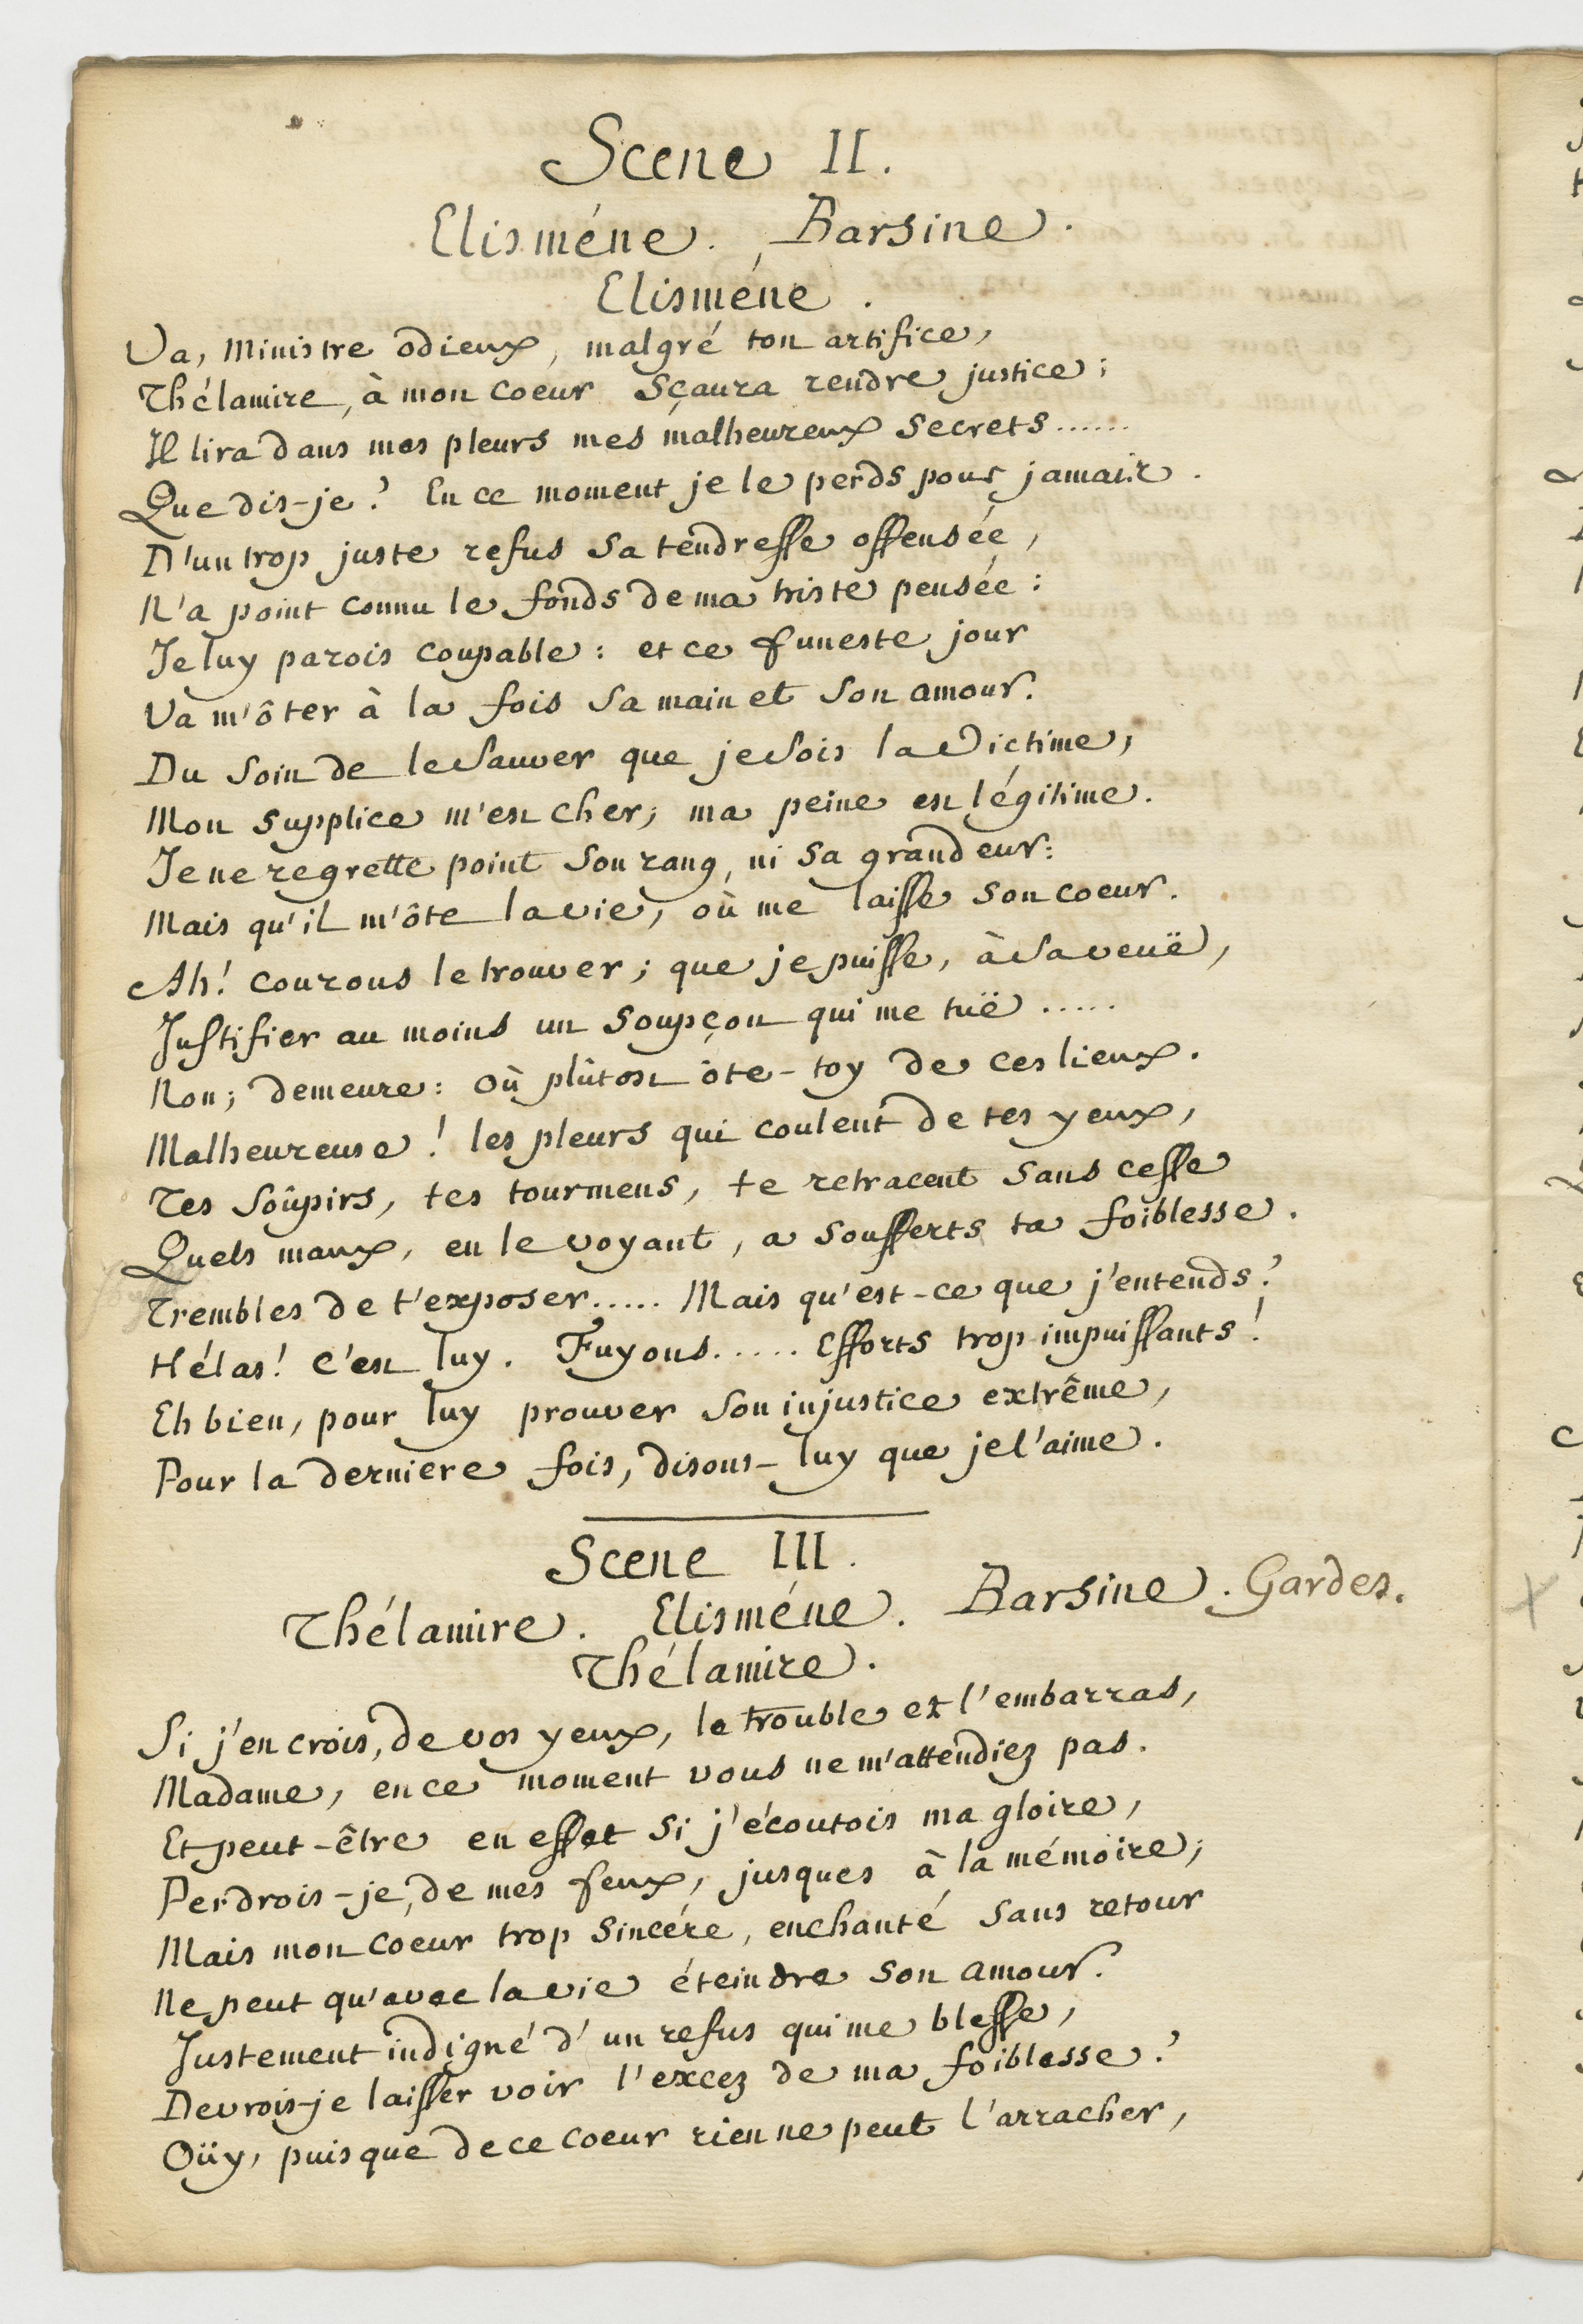 Scene II.
Elisméne. Barsine.
Elisméne.
Va, Ministre odieux, malgré ton artifice,
Thélamire, à mon coeur sçaura rendre justice;
Il lira dans mes pleurs mes malheureux secrets......
Que dis-je? En ce moment je le perds pour jamais.
D'un trop juste refus sa tendresse offensée,
N'a point connu le fonds de ma triste pensée:
Je luy parois coupable: et ce funeste jour
Va m'ôter à la fois sa main et son amour.
Du soin de le sauver que je sois la victime,
Mon supplice m'est cher; ma peine est légitime.
Je ne regrette point son rang, ni sa grandeur:
Mais qu'il m'ôte la vie, où me laisse son coeur.
Ah! courons le trouver; que je puisse, à sa veuë,
Justifier au moins un soupçon qui me tuë.....
Non; demeure: où plûtost ôte-toy de ces lieux.
Malheureuse! les pleurs qui coulent de tes yeux,
Tes soûpirs, tes tourmens, te retracent sans cesse
Quels maux, en le voyant, a soufferts ta foiblesse.
Trembles de t'exposer..... Mais qu'est-ce que j'entends?
Hélas! c'est luy. Fuyons..... Efforts trop impuissants!
Eh bien, pour luy prouver son injustice extrême,
Pour la derniere fois, disons-luy que je l'aime.
Scene III.
Thélamire. Elisméne. Barsine. Gardes.
Thélamire.
Si j'en crois, de vos yeux, le trouble et l'embarras,
Madame, en ce moment vous ne m'attendiez pas.
Et peut-être en effet si j'écoutois ma gloire,
Perdrois-je, de mes feux, jusques à la mémoire;
Mais mon coeur trop sincére, enchanté sans retour
Ne peut qu'avec la vie éteindre son amour.
Justement indigné d'un refus qui me blesse,
Devrois-je laisser voir l'excez de ma foiblesse?
Oüy, puisque de ce coeur rien ne peut l'arracher,